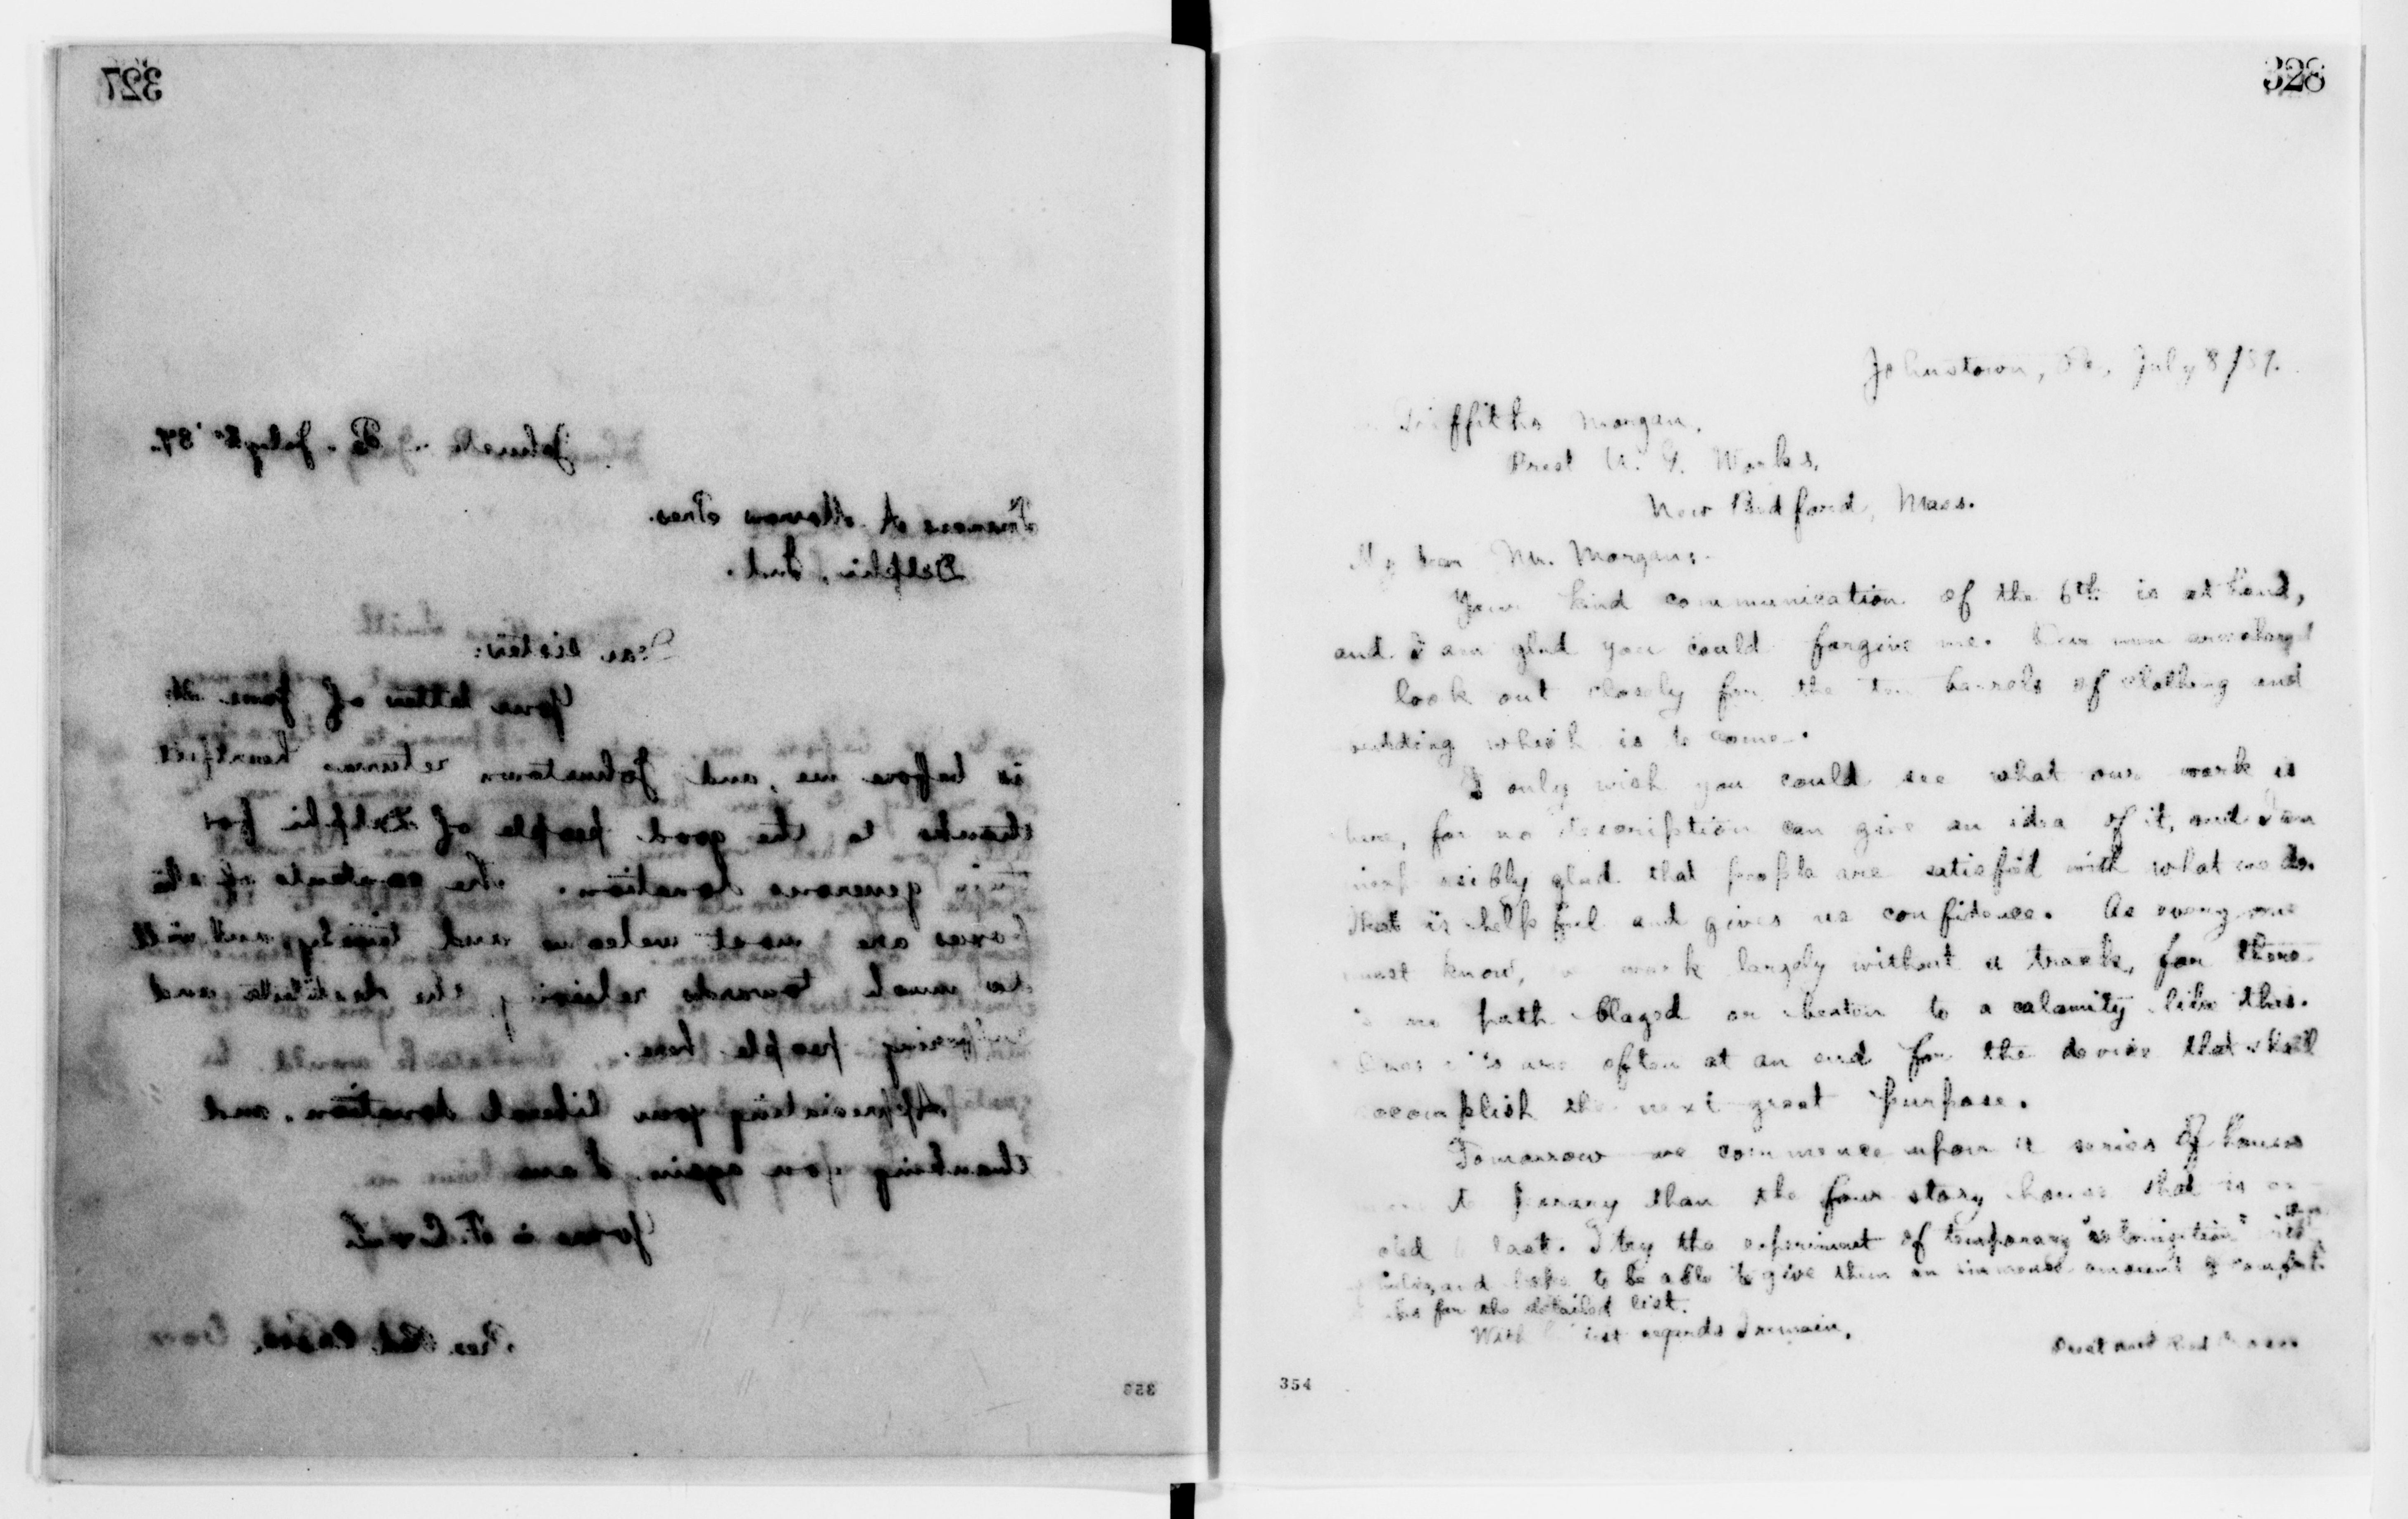 327
Johnst , Pa. July 8" '89.
Frances A. Morrow Pres.
Delphi, Ind.
Dear sister:
Your letter of June
is before me, and, Johnstown returns heartfelt
thanks to the good people of Delphi for
generous donation. The contents of the
boxes are most welcome and timely, and will
do much towards relieving the destitute and
suffering people here.
Appreciating your liberal donation, and
thanking you again, I am
Yours in F. C. and L.
Pres. Red Cross.
328
Johnstown, Pa., July 8/89.
Griffiths Morgan,
Prest U. G. Works,
New Bedford, Mass.
My dear Mr. Morgan:-
Your kind communication of the 6th is at hand,
and I am glad you could forgive me. Our men
look out closely for the ten barrels of clothing and
bedding which is to come.
I only wish you could see what our work is
here, for no description can give an idea of it, and I am
glad that people are satisfied with what we do.
that is helpful and gives us confidence. As every one
must know, we work largely without a track, for there
is no path blazed or beaten to a calamity like this.
are often at an end for the device that shall
accomplish the next great purpose.
Tomorrow we commence upon a series of houses
than the four story house that is
last. I try the experiment of temporary
and hope to be able to give them an immense amount of comfort.
for the detailed list.
With regards I remain,
Prest Red Cross
354